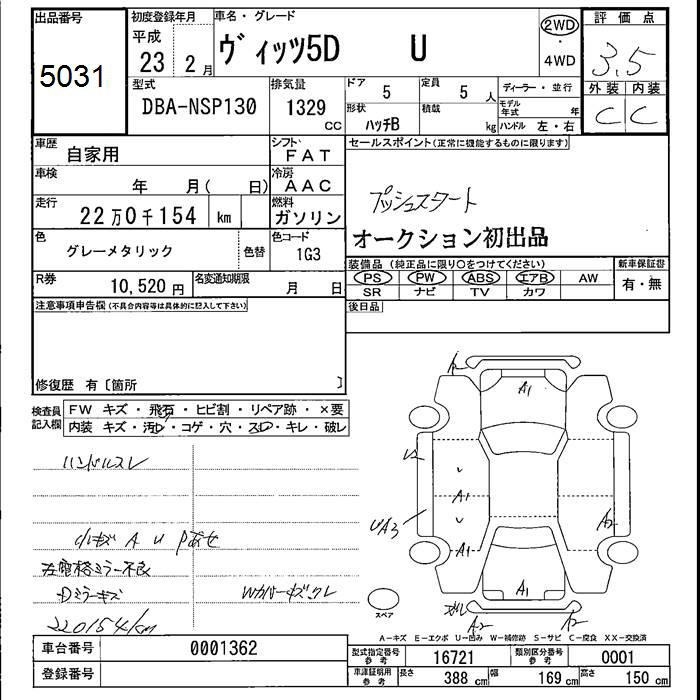 出品番号
5031
初度登録年月
平成
23 2月
車名・グレード
ヴィッツ5D U
2WD
・
4WD
評価点
3.5
外装 内装
C C
型式
DBA-NSP130
排気量
1329
CC
ドア
5
定員
5人
形状
ハッチB
積載
kg
ディーラー・並行
モデル年式 年
ハンドル 左・右
車歴
自家用
シフト
FAT
車検
年 月( 日)
冷房
AAC
走行
22万0千154 km
燃料
ガソリン
色
グレーメタリック
色替
色コード
1G3
R券
10,520円
名変通知期限
月 日
セールスポイント(正常に機能するものに限ります)
プッシュスタート
オークション初出品
装備品(純正品に限り○をつけてください)
PS PW ABS エアB AW
SR ナビ TV カワ
新車保証書
有・無
後日品
注意事項申告欄(不具合内容等は具体的に記入して下さい)
修復歴 有〔箇所 〕
検査員記入欄
FW キズ・飛石・ヒビ割・リペア跡・×要
内装 キズ・汚レ・コゲ・穴・スレ・キレ・破レ
ハンドルスレ
小キズ A U Pあせ
左電格ミラー不良
Dミラーキズ
Wカバーキズ,クレ
220154km
A1
A1
A1
A1
UA3
A2
A2
A2
スペア
A-キズ E-エクボ U-凹み W-補修跡 S-サビ C-腐食 XX-交換済
車台番号
0001362
登録番号
型式指定番号
参考
16721
類別区分番号
参考
0001
車庫証明用
参考
長さ 388cm
幅 169cm
高さ 150cm